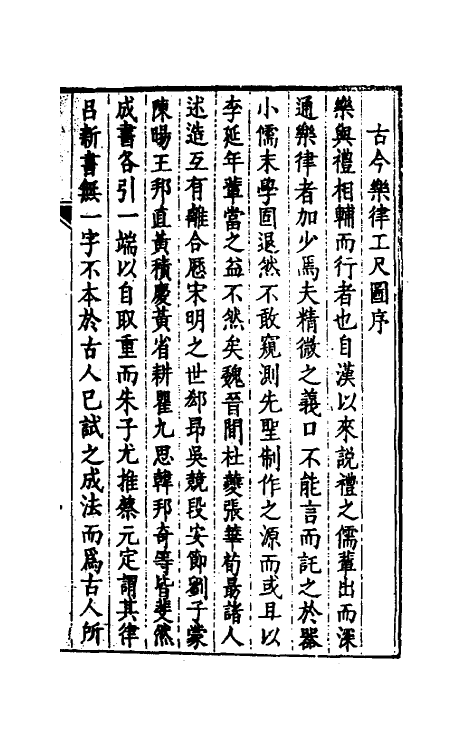 古今樂律工尺圖序
樂與禮相輔而行者也自漢以來說禮之儒輩出而深
通樂律者加少焉夫精微之義口不能言而託之於器
小儒末學固退然不敢窺測先聖制作之源而或且以
李延年輩當之益不然矣魏晉間杜夔張華荀勗諸人
述造互有離合歷宋明之世郄昂吳兢段安節劉子蒙
陳暘王邦直黃積慶黃省耕瞿九思韓邦奇等皆斐然
成書各引一端以自取重而朱子尤推蔡元定謂其律
呂新書無一字不本於古人已試之成法而爲古人所